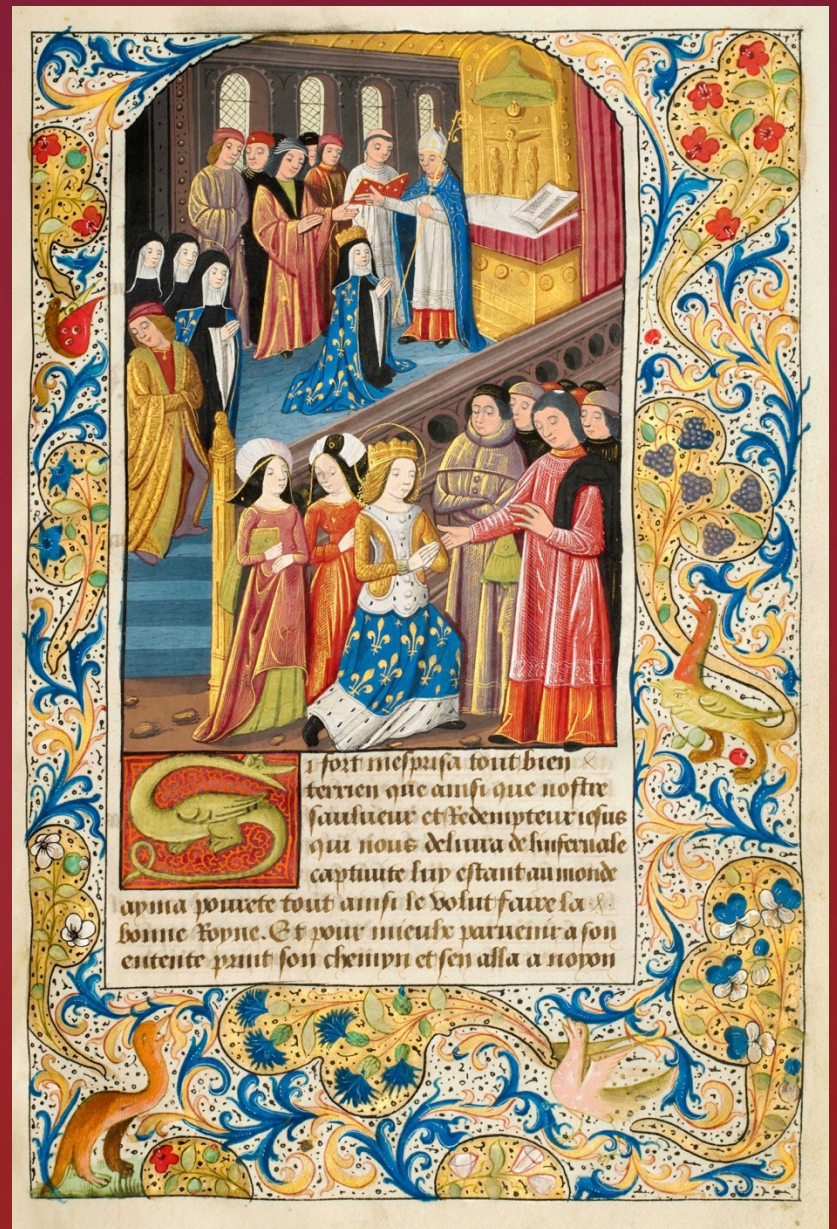 Si fort mesprisa tout bien
terrien que ainsi que nostre
saulueur et Redempteur iesus
qui nous deliura de linfernale
captiuite luy estant au monde
ayma pourete tout ainsi le volut faire la
bonne Royne. Et pour mieulx paruenir a son
entente print son chemyn et sen alla a noyon